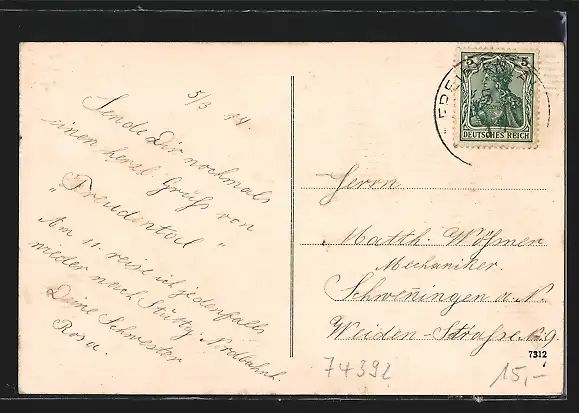 5/3 11.
Sende Dir nochmals
einen herzl Gruss von
"Freudental"
Am 11. reise ich jedenfalls
wieder nach Stuttg. Nordbahnh.
Deine Schwester
Rosa.
5 5
DEUTSCHES REICH
Herrn
Matth. Wößner
Mechaniker.
Schweningen a. N.
Weiden-Straße 9.
7312
74392
15,-